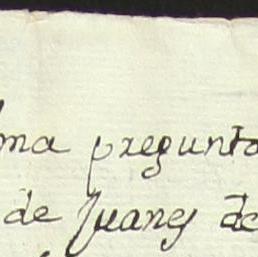 ma pregunta
de Juanes de